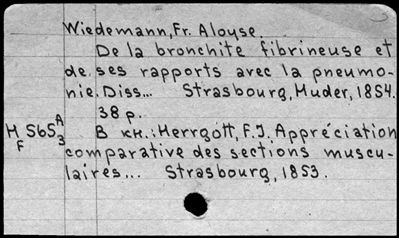 Wiedemann, Fr. Aloyse.
De la bronchite fibrineuse et
de ses rapports avec la pneumo-
nie. Diss... Strasbourg, Huder, 1854.
38 p.
H 565 A/3
F
В кн.: Herrgott, F.J. Appréciation
comparative des sections muscu-
laires... Strasbourg, 1853.